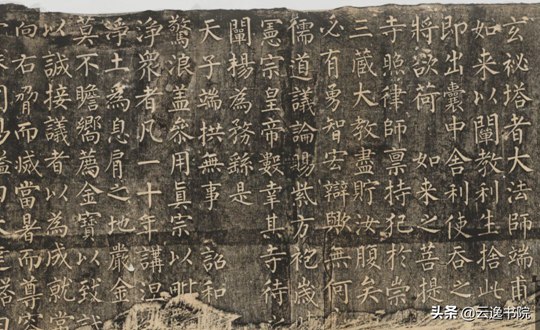 玄祕塔者大法師端甫
如来以闡教利生捨此
即出囊中舍利使吞之
將欲荷 如来之菩提
寺照律師禀持犯於崇
三藏大教盡貯汝腹矣
必有勇智宏辯歟無何
儒道議論賜紫方袍歲時
憲宗皇帝數幸其寺待
闡揚為務繇是
天子端拱無事 詔和
驚浪蓋叅用真宗以毗
淨衆者凡一十年講涅
淨土為息肩之地嚴金
莫不瞻嚮薦金寶以致
以誠接議者以為成就常
向右脅而滅當暑而尊容
头条 @云逸书院